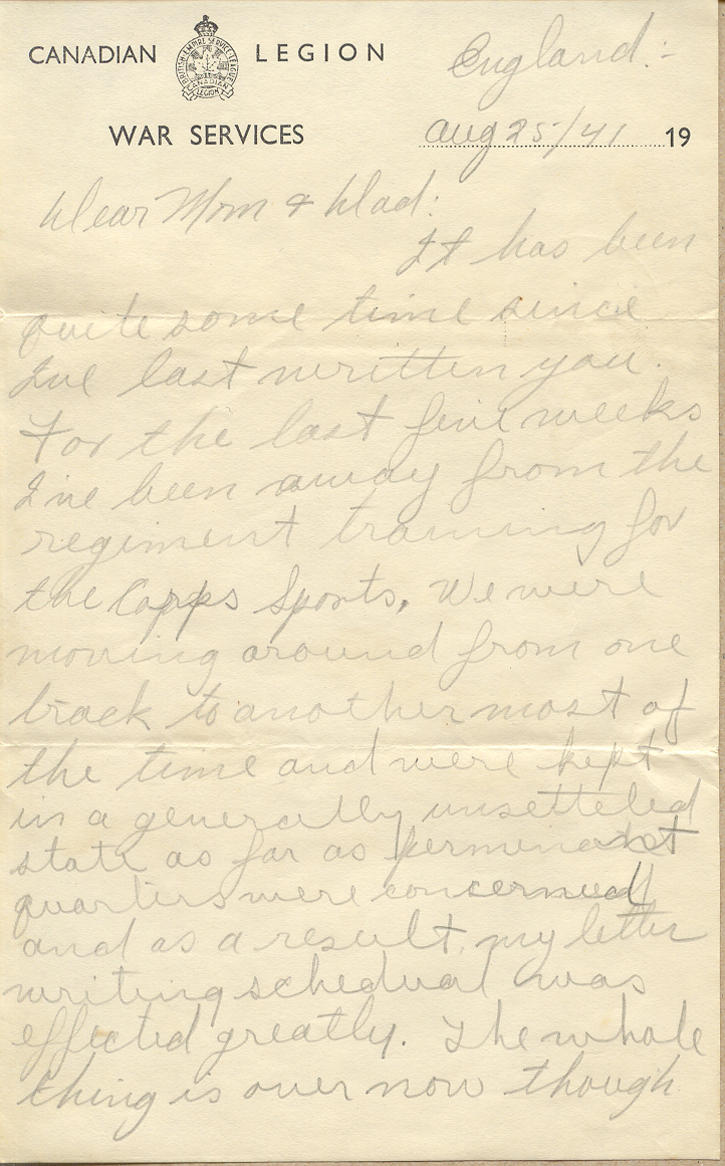 CANADIAN LEGION
WAR SERVICES
England:-
Aug 25/41 19
Dear Mom & Dad:
It has been
quite some time since
I've last written you.
For the last five weeks
I've been away from the
regiment training for
the Corps Sports. We were
moving around from one
track to another most of
the time and were kept
in a generally unsetteled
state as far as permenant
quarters were concerned
and as a result, my letter
writing schedual was
effected greatly. The whole
thing is over now though